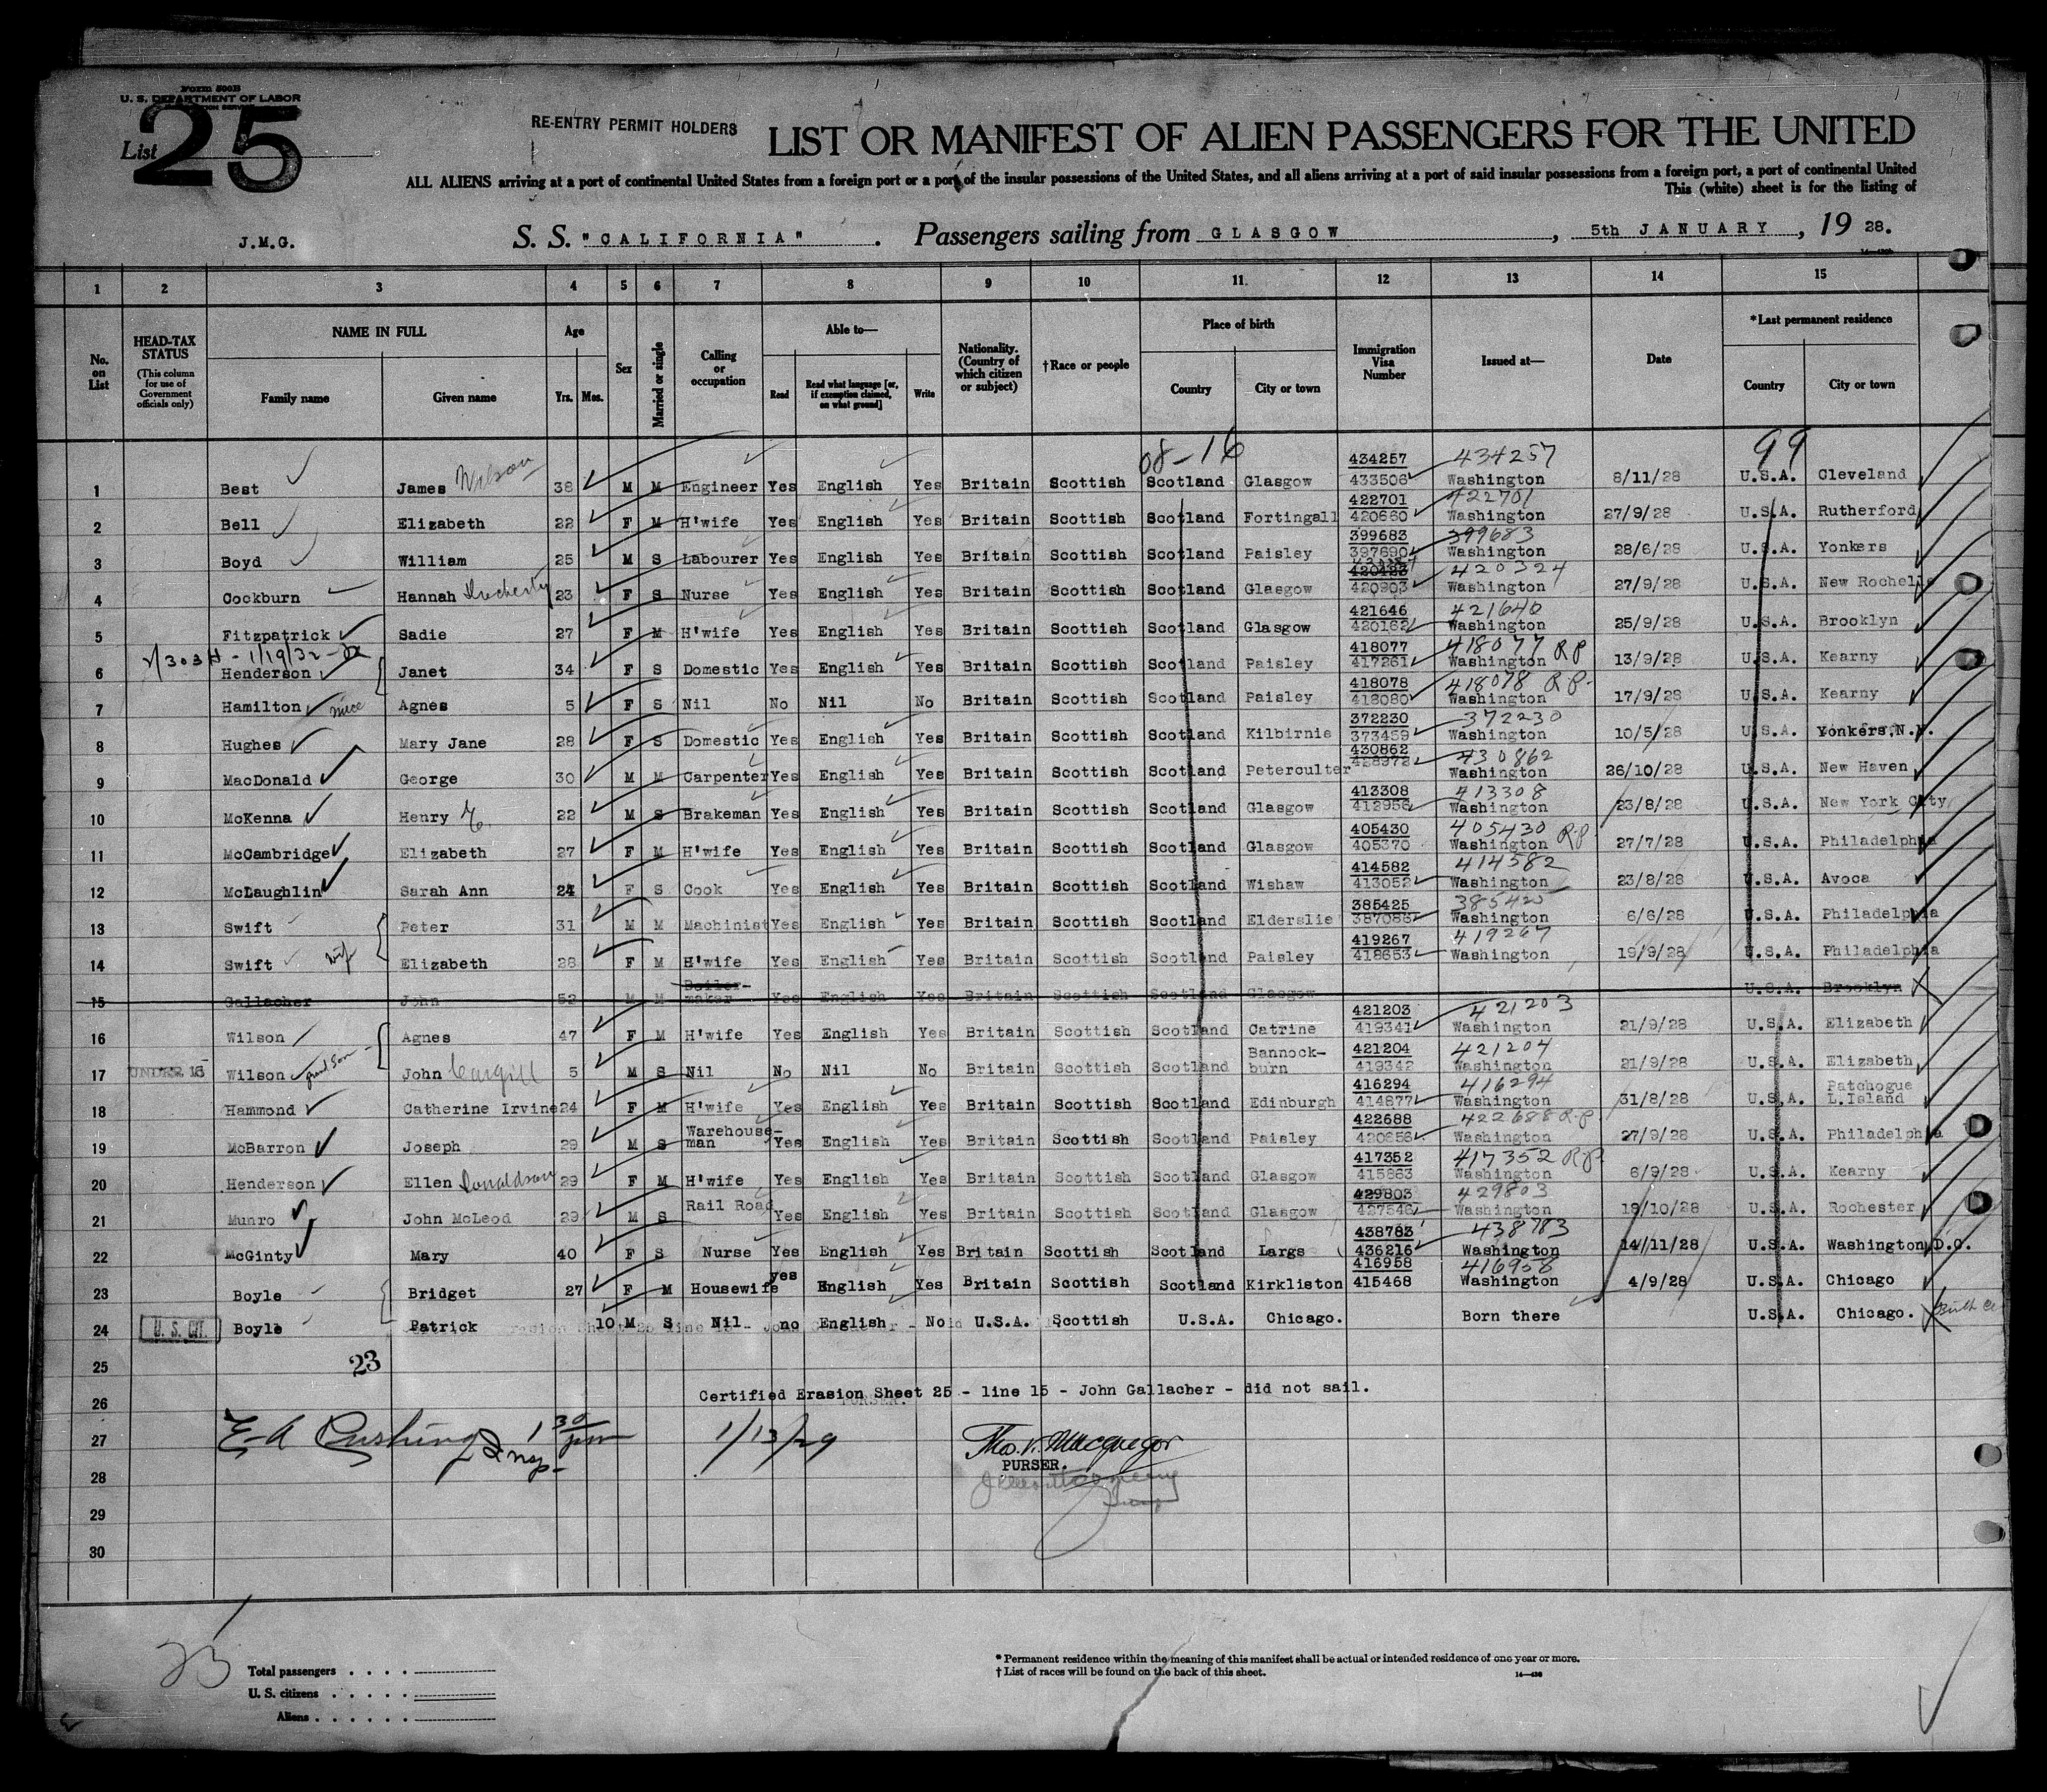 Form 500B
U. S. DEPARTMENT OF LABOR
List 25
RE-ENTRY PERMIT HOLDERS
LIST OR MANIFEST OF ALIEN PASSENGERS FOR THE UNITED
ALL ALIENS arriving at a port of continental United States from a foreign port or a port of the insular possessions of the United States, and all aliens arriving at a port of said insular possessions from a foreign port, a port of continental United
This (white) sheet is for the listing of
J.M.G. S. S. "CALIFORNIA" . Passengers sailing from GLASGOW , 5th JANUARY , 19 28.
1 2 3 4 5 6 7 8 9 10 11 12 13 14 15
No. on List
HEAD-TAX STATUS (This column for use of Government officials only)
NAME IN FULL Family name Given name
Age Yrs. Mos.
Sex
Married or single
Calling or occupation
Able to— Read Read what language [or, if exemption claimed, on what ground] Write
Nationality. (Country of which citizen or subject)
†Race or people
Place of birth Country City or town
Immigration Visa Number
Issued at—
Date
*Last permanent residence Country City or town
08-16 99
434257 434257
1 Best James Wilson 38 M M Engineer Yes English Yes Britain Scottish Scotland Glasgow 433506 Washington 8/11/28 U.S.A. Cleveland
422701 422701
2 Bell Elizabeth 22 F M H'wife Yes English Yes Britain Scottish Scotland Fortingall 420660 Washington 27/9/28 U.S.A. Rutherford
399683 399683
3 Boyd William 25 M S Labourer Yes English Yes Britain Scottish Scotland Paisley 397690 Washington 28/6/28 U.S.A. Yonkers
420324
4 Cockburn Hannah 23 F S Nurse Yes English Yes Britain Scottish Scotland Glasgow 420903 Washington 27/9/28 U.S.A. New Rochelle
421646 421640
5 Fitzpatrick Sadie 27 F M H'wife Yes English Yes Britain Scottish Scotland Glasgow 420162 Washington 25/9/28 U.S.A. Brooklyn
418077 418077 RP
6 Henderson Janet 34 F S Domestic Yes English Yes Britain Scottish Scotland Paisley 417261 Washington 13/9/28 U.S.A. Kearny
418078 418078 R.P.
7 Hamilton niece Agnes 5 F S Nil No Nil No Britain Scottish Scotland Paisley 418080 Washington 17/9/28 U.S.A. Kearny
372230 372230
8 Hughes Mary Jane 28 F S Domestic Yes English Yes Britain Scottish Scotland Kilbirnie 373459 Washington 10/5/28 U.S.A. Yonkers, N.Y.
430862 430862
9 MacDonald George 30 M M Carpenter Yes English Yes Britain Scottish Scotland Peterculter 428972 Washington 26/10/28 U.S.A. New Haven
413308 413308
10 McKenna Henry 22 M S Brakeman Yes English Yes Britain Scottish Scotland Glasgow 412956 Washington 23/8/28 U.S.A. New York City
405430 405430 R.P.
11 McCambridge Elizabeth 27 F M H'wife Yes English Yes Britain Scottish Scotland Glasgow 405370 Washington 27/7/28 U.S.A. Philadelphia
414582 414582
12 McLaughlin Sarah Ann 24 F S Cook Yes English Yes Britain Scottish Scotland Wishaw 413052 Washington 23/8/28 U.S.A. Avoca
385425 385425
13 Swift Peter 31 M M Machinist Yes English Yes Britain Scottish Scotland Elderslie 387086 Washington 6/6/28 U.S.A. Philadelphia
419267 419267
14 Swift wife Elizabeth 28 F M H'wife Yes English Yes Britain Scottish Scotland Paisley 418653 Washington 19/9/28 U.S.A. Philadelphia
15 Gallacher John 52 M M Boiler-maker Yes English Yes Britain Scottish Scotland Glasgow U.S.A. Brooklyn
421203 421203
16 Wilson Agnes 47 F M H'wife Yes English Yes Britain Scottish Scotland Catrine 419341 Washington 21/9/28 U.S.A. Elizabeth
421204 421204
17 UNDER 16 Wilson grand son John Cargill 5 M S Nil No Nil No Britain Scottish Scotland Bannock-burn 419342 Washington 21/9/28 U.S.A. Elizabeth
416294 416294
18 Hammond Catherine Irvine 24 F M H'wife Yes English Yes Britain Scottish Scotland Edinburgh 414877 Washington 31/8/28 U.S.A. Patchogue L.Island
422688 422688 R.P.
19 McBarron Joseph 29 M S Warehouse-man Yes English Yes Britain Scottish Scotland Paisley 420656 Washington 27/9/28 U.S.A. Philadelphia
417352 417352 R.P.
20 Henderson Ellen Donaldson 29 F M H'wife Yes English Yes Britain Scottish Scotland Glasgow 415863 Washington 6/9/28 U.S.A. Kearny
429803 429803
21 Munro John McLeod 29 M S Rail Road Yes English Yes Britain Scottish Scotland Glasgow 427546 Washington 19/10/28 U.S.A. Rochester
438783 438783
22 McGinty Mary 40 F S Nurse Yes English Yes Britain Scottish Scotland Largs 436216 Washington 14/11/28 U.S.A. Washington, D.C.
416958 416958
23 Boyle Bridget 27 F M Housewife yes English Yes Britain Scottish Scotland Kirkliston 415468 Washington 4/9/28 U.S.A. Chicago
24 U. S. CIT. Boyle Patrick 10 M S Nil no English No U.S.A. Scottish U.S.A. Chicago. Born there U.S.A. Chicago.
25 23
26 Certified Erasion Sheet 25 - line 15 - John Gallacher - did not sail.
PURSER.
27 E. A. Cushing Insp. 1 30 pm 1/13/29 Thos. V. Macgregor
PURSER.
28
29
30
Total passengers
U. S. citizens
Aliens
* Permanent residence within the meaning of this manifest shall be actual or intended residence of one year or more.
† List of races will be found on the back of this sheet.